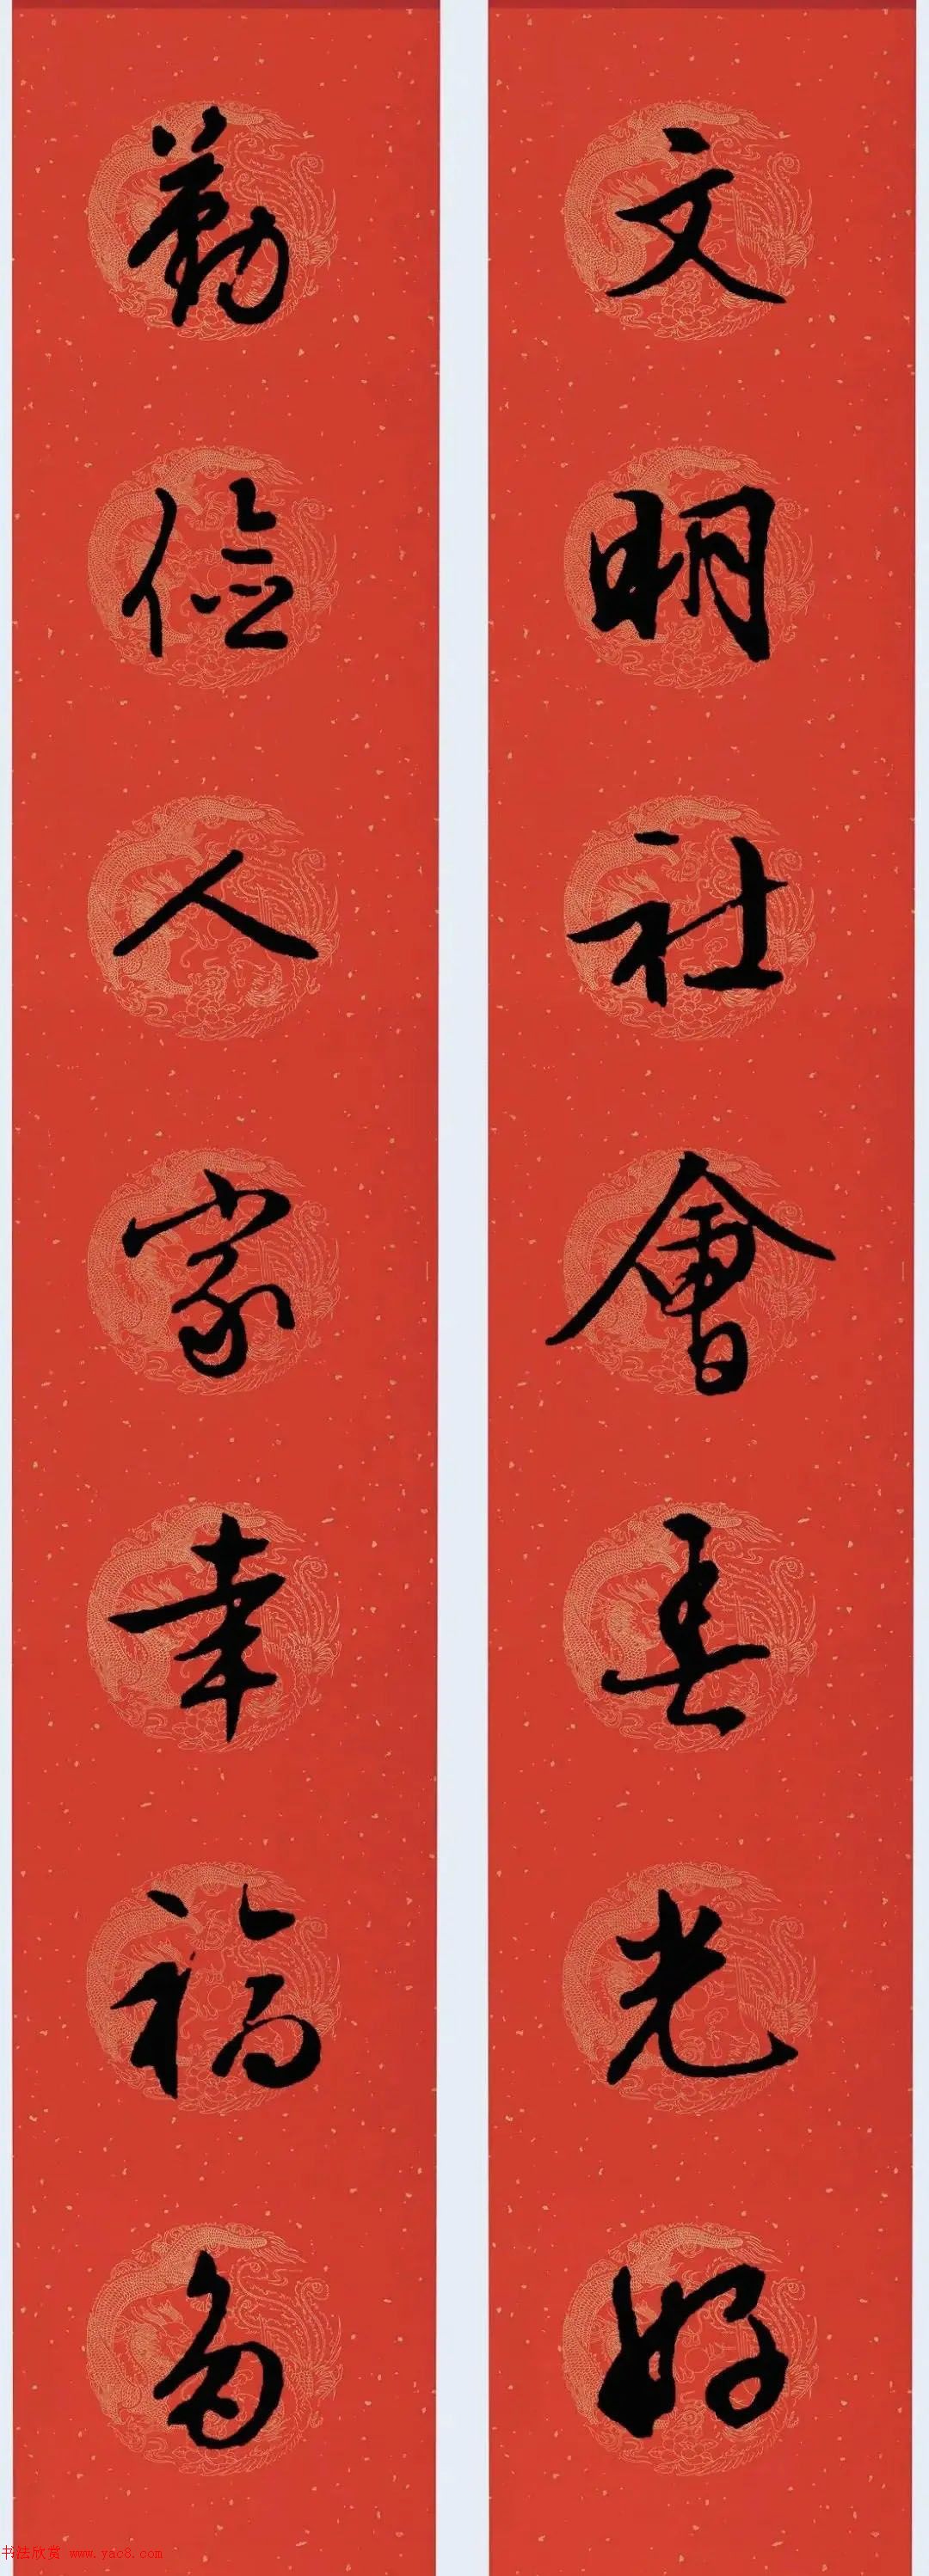 文明社會春光好
勤儉人家幸福多
书法欣赏 www.yac8.com